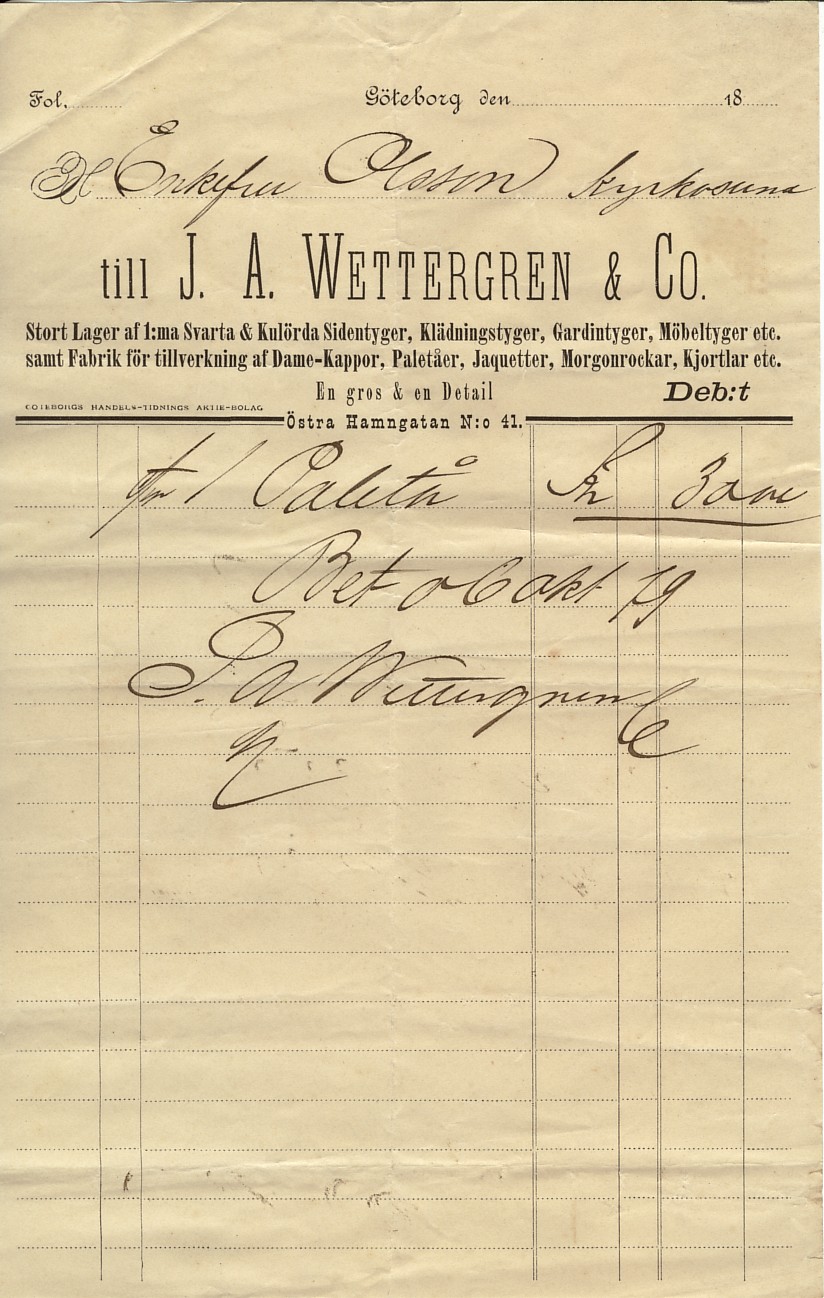 Fol. Göteborg den 18
Enkefru Olsson Kyrkosund
till J. A. WETTERGREN & Co.
Stort Lager af 1:ma Svarta & Kulörda Sidentyger, Klädningstyger, Gardintyger, Möbeltyger etc.
samt Fabrik för tillverkning af Dame-Kappor, Paletåer, Jaquetter, Morgonrockar, Kjortlar etc.
En gros & en Detail Deb:t
GÖTEBORGS HANDELS-TIDNINGS AKTIE-BOLAG
Östra Hamngatan N:o 41.
1 Paletå Kr
Bet okt
J. A Wettergren Co